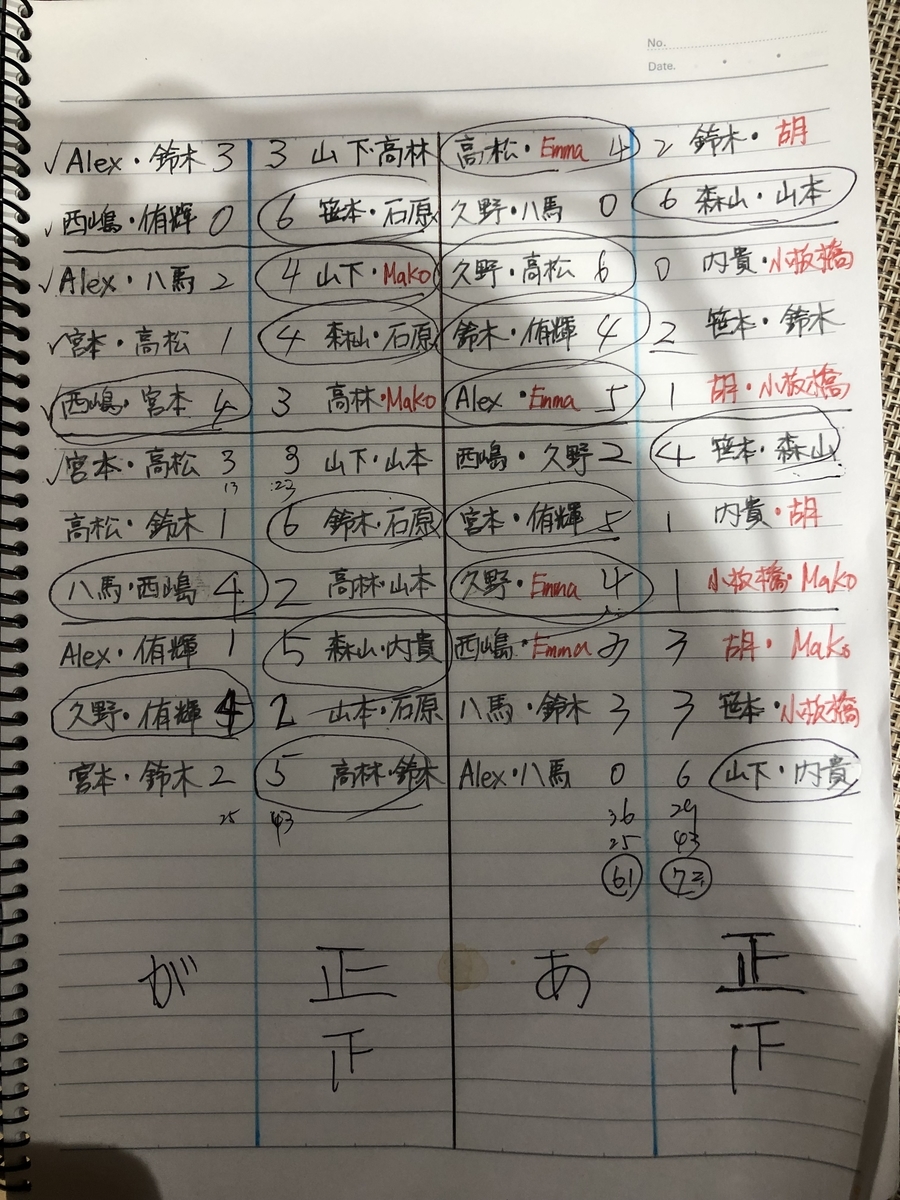 No.
Date.
✓Alex・鈴木 3 3 山下・高林 高松・Emma 4 2 鈴木・胡
✓西嶋・侑輝 0 6 笹本・石原 久野・八馬 0 6 森山・山本
✓Alex・八馬 2 4 山下・Mako 久野・高松 6 0 内貴・小板橋
✓宮本・高松 1 4 森山・石原 鈴木・侑輝 4 2 笹本・鈴木
✓西嶋・宮本 4 3 高林・Mako Alex・Emma 5 1 胡・小板橋
✓宮本・高松 3 3 山下・山本 西嶋・久野 2 4 笹本・森山
13 :23
高松・鈴木 1 6 鈴木・石原 宮本・侑輝 5 1 内貴・胡
八馬・西嶋 4 2 高林・山本 久野・Emma 4 1 小板橋・Mako
Alex・侑輝 1 5 森山・内貴 西嶋・Emma 3 3 胡・Mako
久野・侑輝 4 2 山本・石原 八馬・鈴木 3 3 笹本・小板橋
宮本・鈴木 2 5 高林・鈴木 Alex・八馬 0 6 山下・内貴
25 43 36 29
25 43
61 72
が 正 あ 正